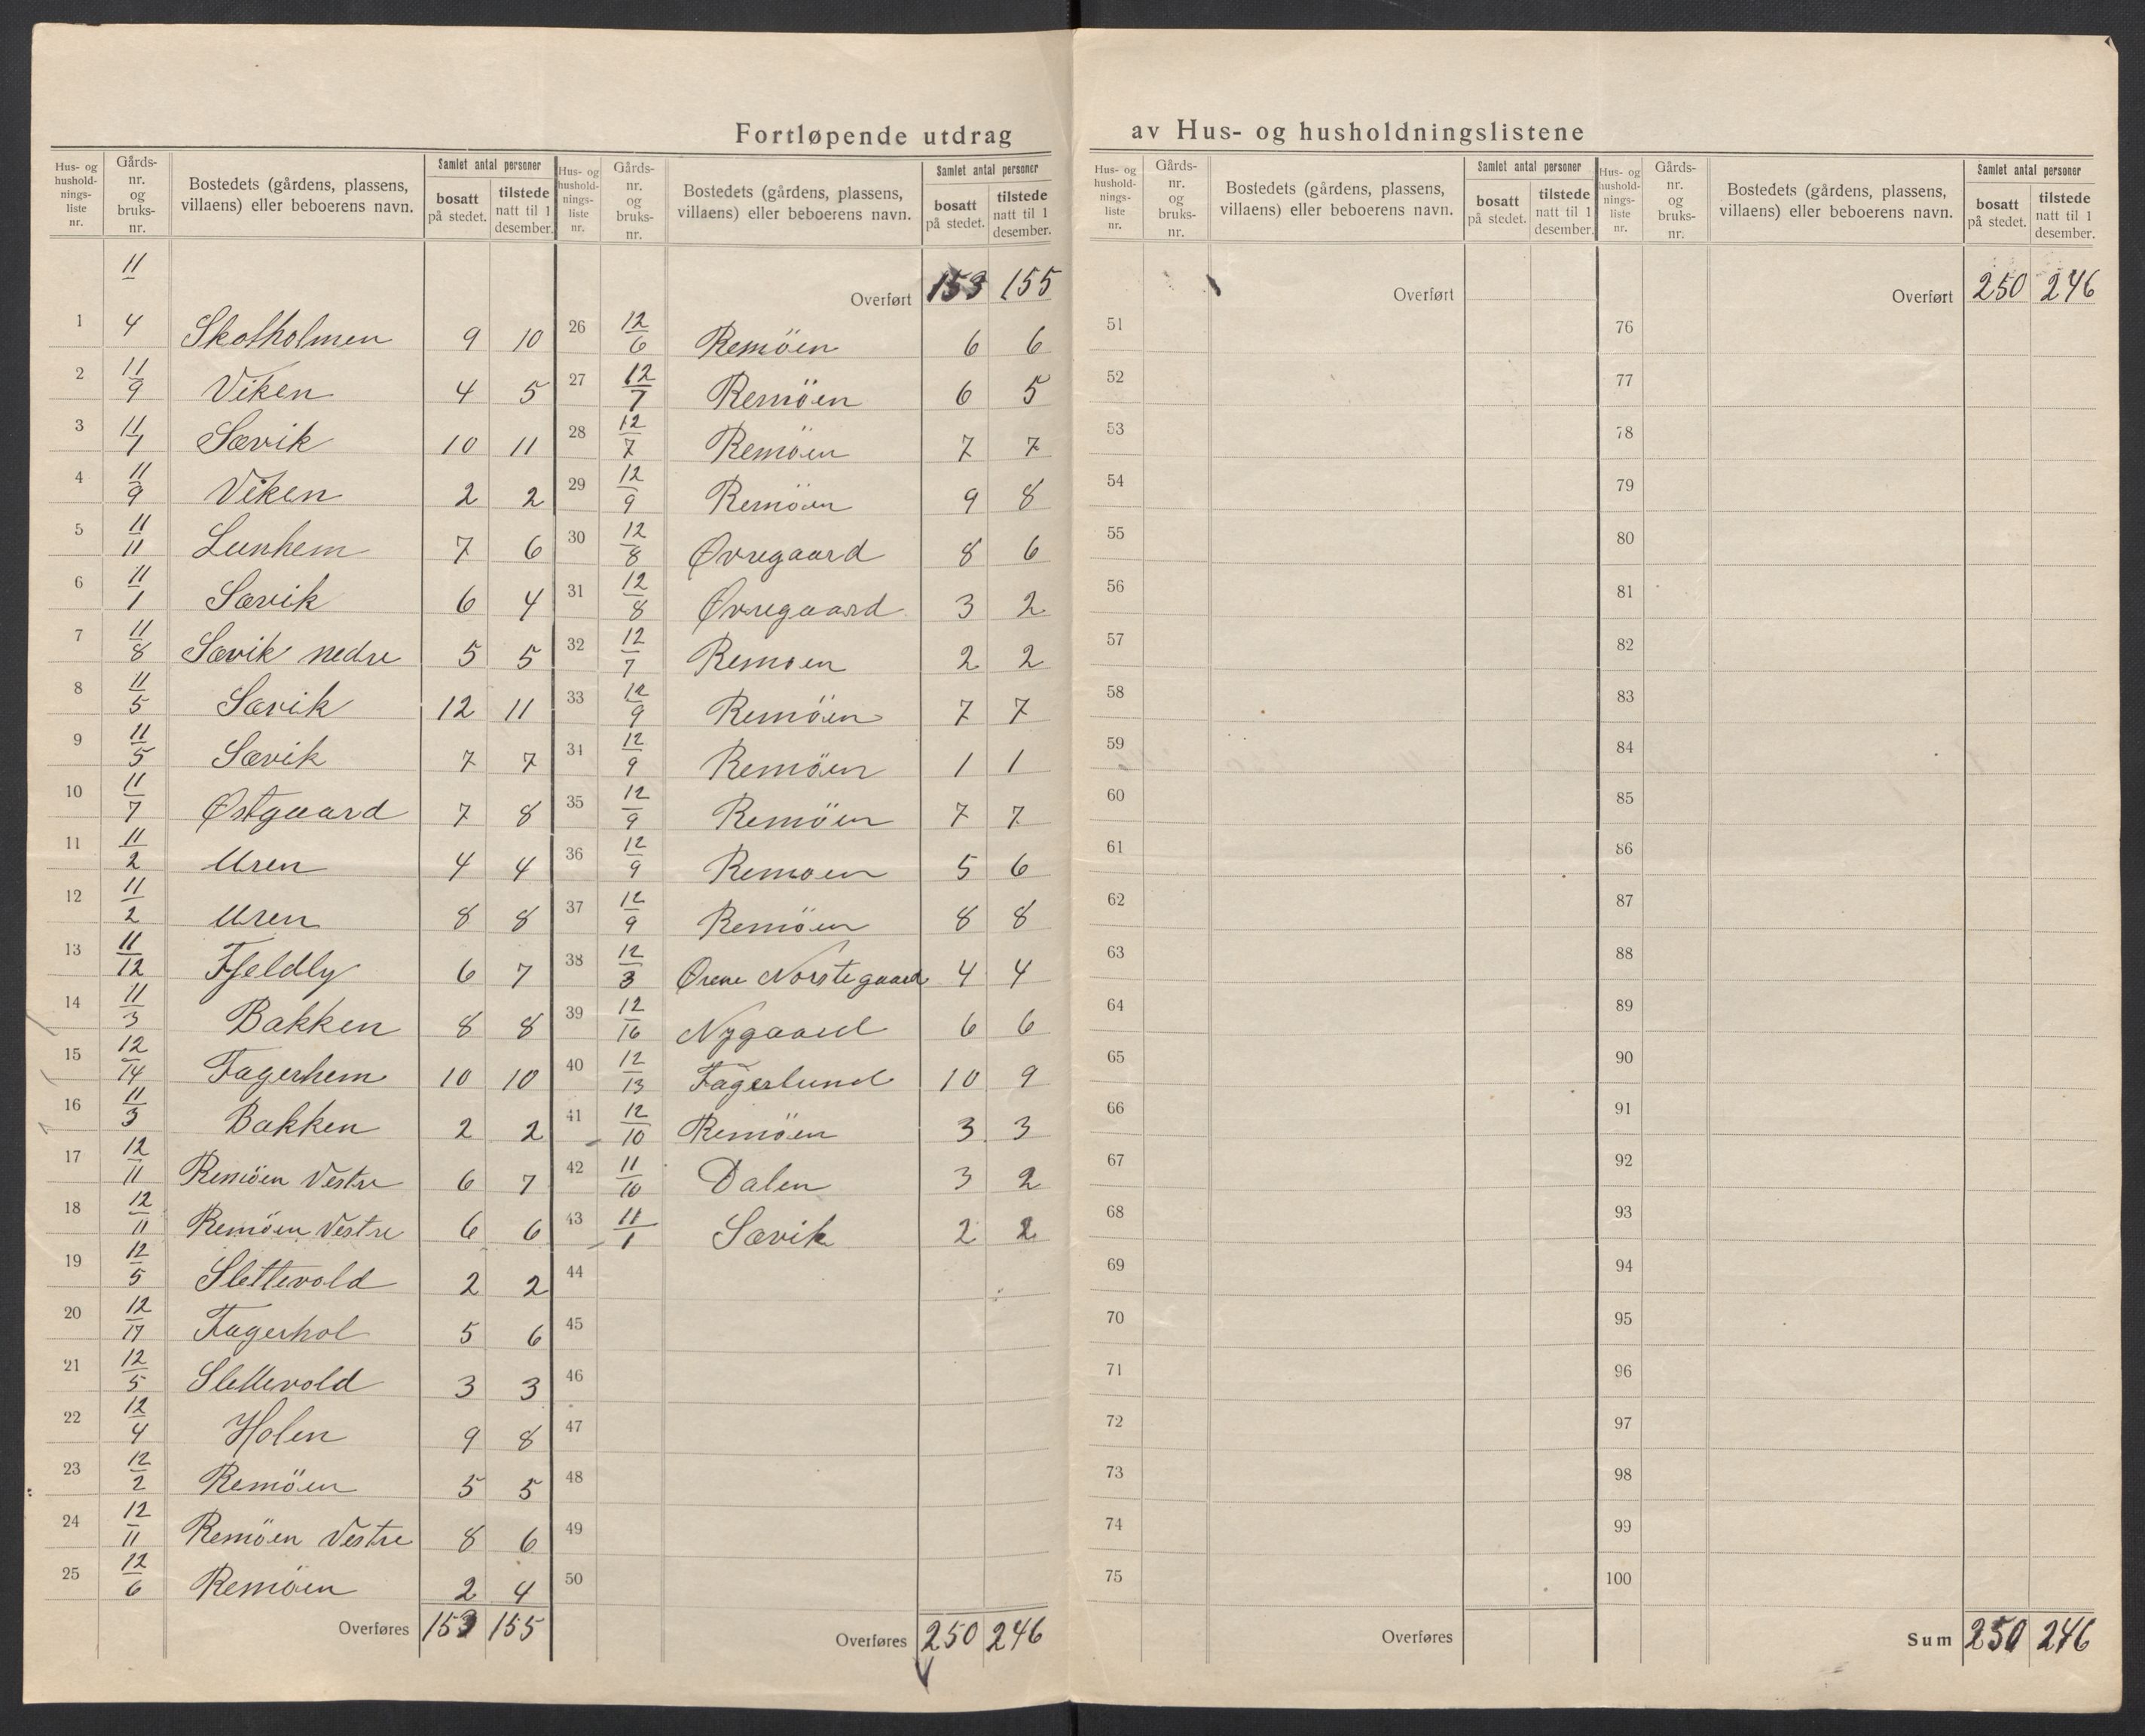 Fortløpende utdrag av Hus- og husholdningslistene
Hus- og husholdnings-liste nr. | Gårds-nr. og bruks-nr. | Bostedets (gårdens, plassens, villaens) eller beboerens navn. | Samlet antal personer | bosatt på stedet. | tilstede natt til 1 desember.
11
1 4 Skotholmen 9 10
2 11/9 Viken 4 5
3 11/1 Sævik 10 11
4 11/9 Viken 2 2
5 11/11 Lunhem 7 6
6 11/1 Sævik 6 4
7 11/8 Sævik nedre 5 5
8 11/5 Sævik 12 11
9 11/5 Sævik 7 7
10 11/7 Østgaard 7 8
11 11/2 Uren 4 4
12 11/2 Uren 8 8
13 11/12 Fjeldly 6 7
14 11/3 Bakken 8 8
15 12/14 Fagerhem 10 10
16 11/3 Bakken 2 2
17 12/11 Remöen Vestre 6 7
18 12/11 Remöen Vestre 6 6
19 12/5 Slettevold 2 2
20 12/17 Fagerhol 5 6
21 12/5 Slettevold 3 3
22 12/4 Holen 9 8
23 12/2 Remöen 5 5
24 12/11 Remöen Vestre 8 6
25 12/6 Remöen 2 4
Overføres 153 155
Hus- og husholdnings-liste nr. | Gårds-nr. og bruks-nr. | Bostedets (gårdens, plassens, villaens) eller beboerens navn. | Samlet antal personer | bosatt på stedet. | tilstede natt til 1 desember.
Overført 153 155
26 12/6 Remöen 6 6
27 12/7 Remöen 6 5
28 12/7 Remöen 7 7
29 12/9 Remöen 9 8
30 12/8 Øvregaard 8 6
31 12/8 Øvregaard 3 2
32 12/7 Remoen 2 2
33 12/9 Remöen 7 7
34 12/9 Remöen 1 1
35 12/9 Remöen 7 7
36 12/9 Remoen 5 6
37 12/9 Remöen 8 8
38 12/3 Norstegaard 4 4
39 12/16 Nygaard 6 6
40 12/13 Fagerlund 10 9
41 12/10 Remöen 3 3
42 11/10 Dalen 3 2
43 11/1 Sævik 2 2
44
45
46
47
48
49
50
Overføres 250 246
Hus- og husholdnings-liste nr. | Gårds-nr. og bruks-nr. | Bostedets (gårdens, plassens, villaens) eller beboerens navn. | Samlet antal personer | bosatt på stedet. | tilstede natt til 1 desember.
Overført
51
52
53
54
55
56
57
58
59
60
61
62
63
64
65
66
67
68
69
70
71
72
73
74
75
Overføres
Hus- og husholdnings-liste nr. | Gårds-nr. og bruks-nr. | Bostedets (gårdens, plassens, villaens) eller beboerens navn. | Samlet antal personer | bosatt på stedet. | tilstede natt til 1 desember.
Overført 250 246
76
77
78
79
80
81
82
83
84
85
86
87
88
89
90
91
92
93
94
95
96
97
98
99
100
Sum 250 246